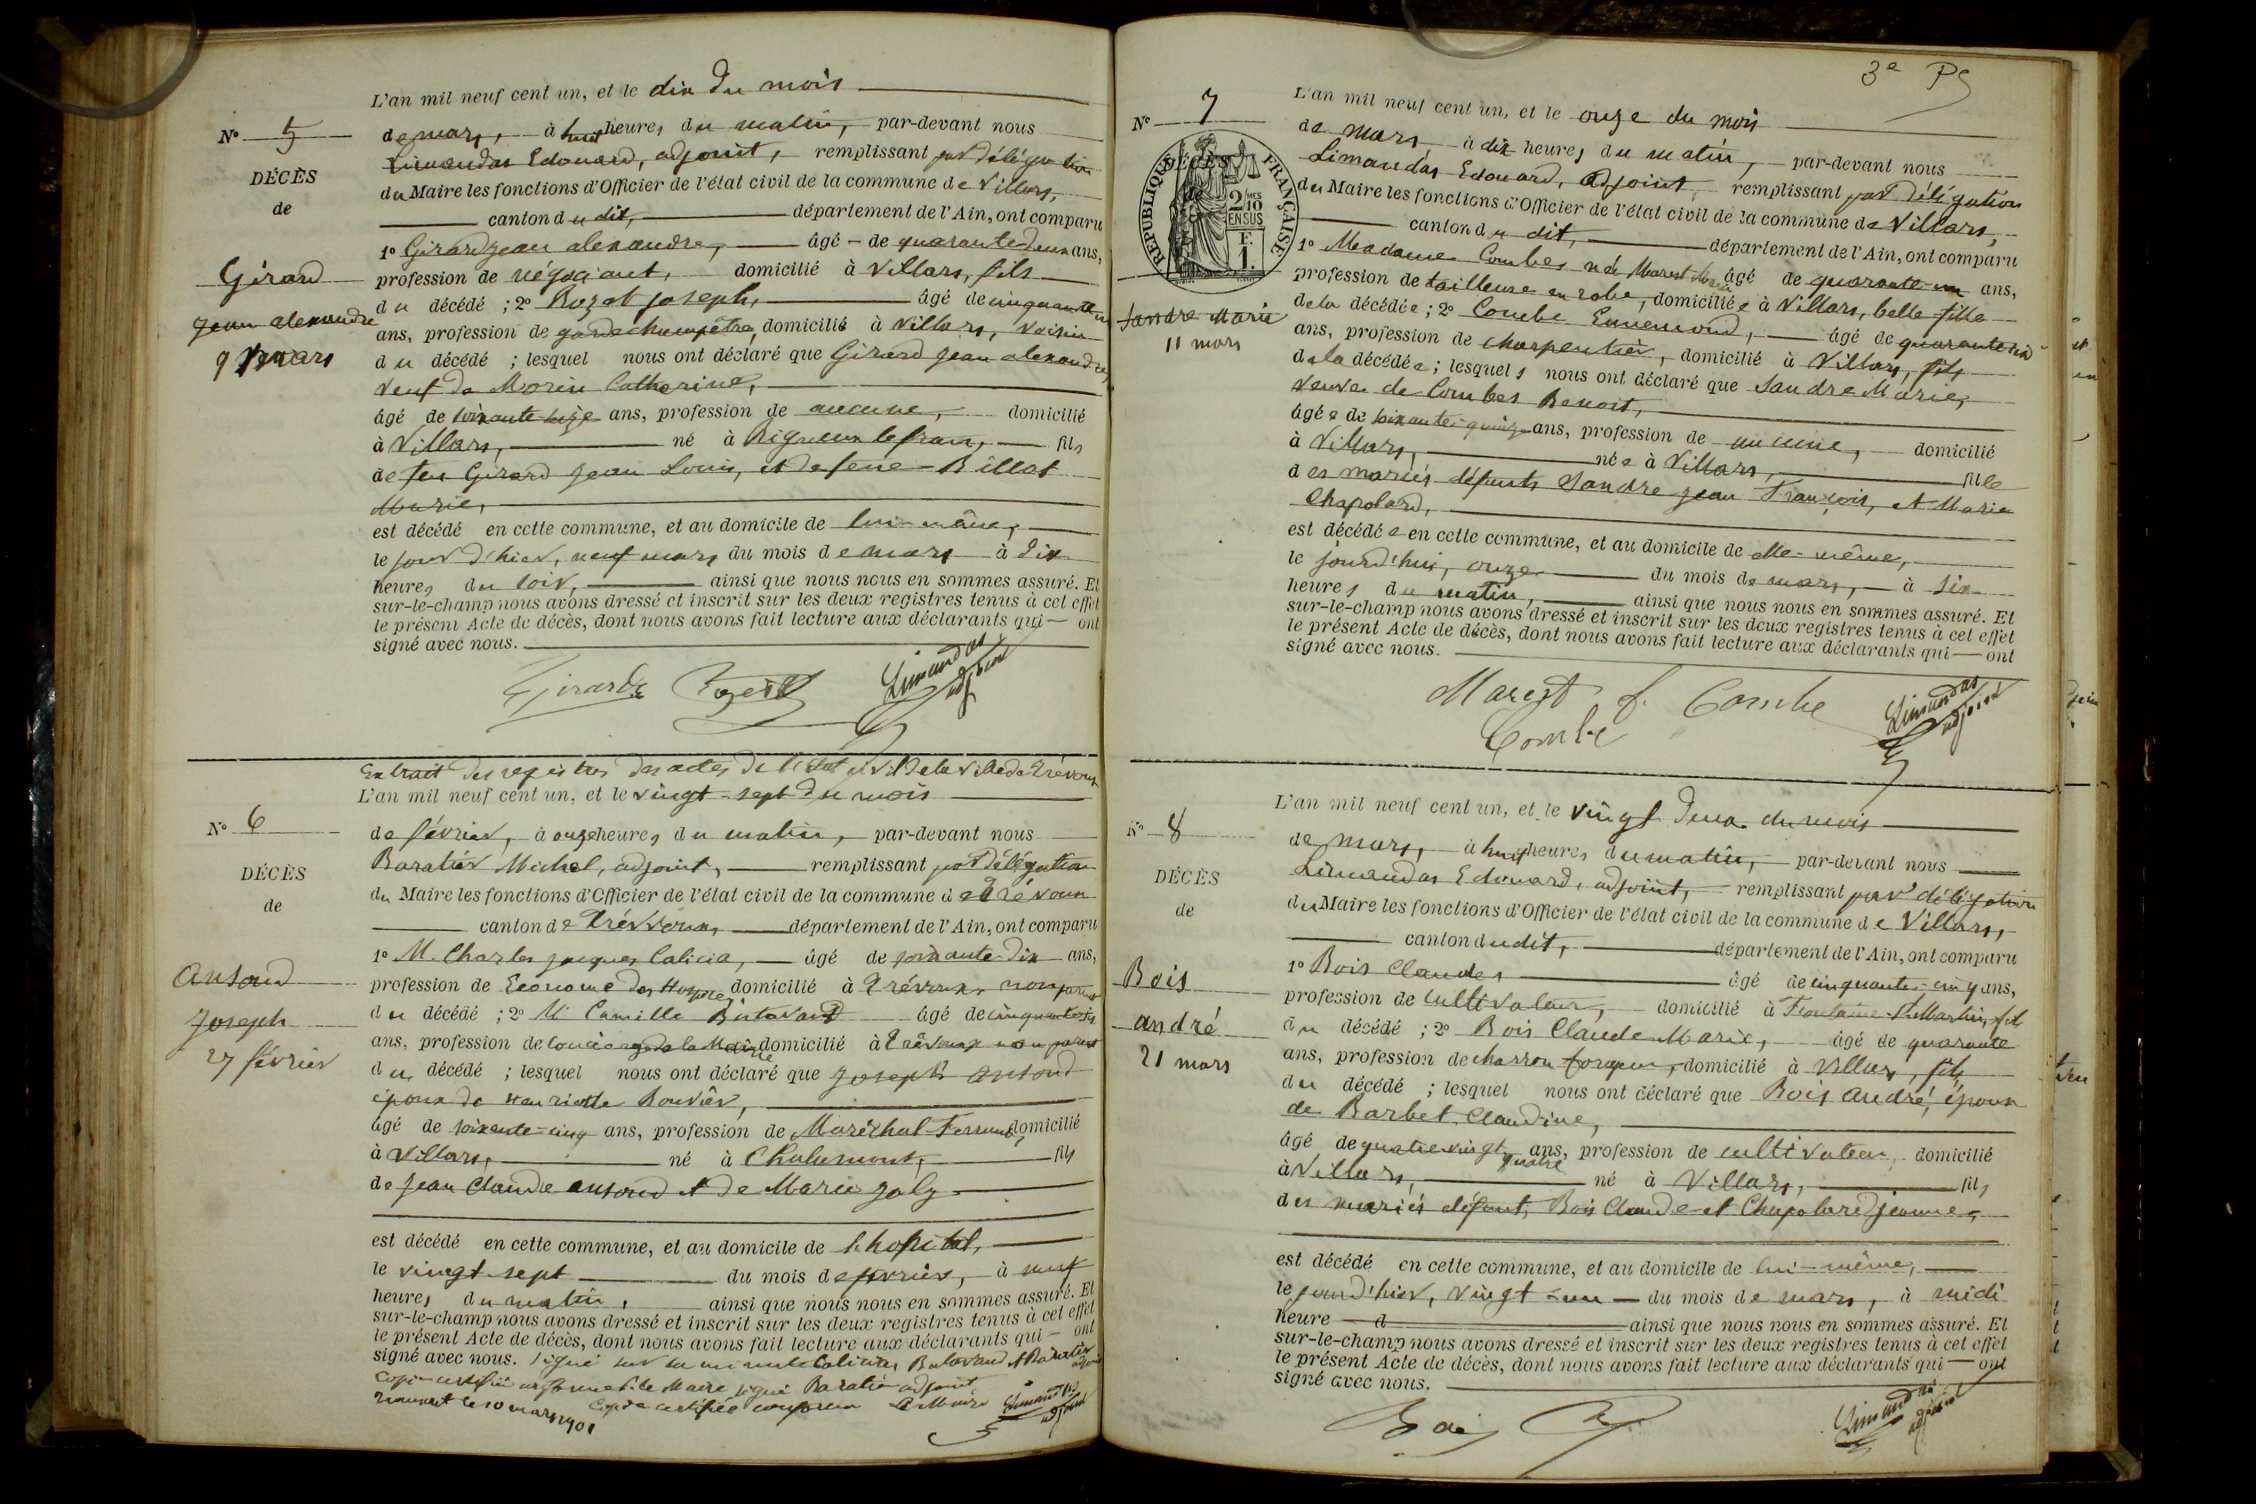 L'an mil neuf cent un, et le dix du mois
N° 5
de mars, à huit heures du matin, par-devant nous
Limandas Edouard, adjoint, remplissant par délégation
DÉCÈS
du Maire les fonctions d'Officier de l'état civil de la commune de Villars,
de
canton du dit, département de l'Ain, ont comparu
1° Girard jean alexandre, âgé de quarante deux ans,
Girard
profession de négociant, domicilié à Villars, fils
jean alexandre
du décédé ; 2° Rozet joseph, âgé de cinquante
ans, profession de garde champêtre, domicilié à Villars, voisin
9 mars
du décédé ; lesquel nous ont déclaré que Girard jean alexandre,
veuf de Morin Catherine,
âgé de soixante seize ans, profession de aucune, domicilié
à Villars, né à Rigneux lefranc, fils
de feu Girard jean Louis, et de feue Billat
Marie,
est décédé en cette commune, et au domicile de lui-même,
le jour d'hier, neuf mars du mois de mars à dix
heures du soir, ainsi que nous nous en sommes assuré. Et
sur-le-champ nous avons dressé et inscrit sur les deux registres tenus à cet effet
le présent Acte de décès, dont nous avons fait lecture aux déclarants qui ont
signé avec nous.
Girard Rozet Limandas
adjoint
Extrait des registres des actes de l'état civil de la ville de Trévoux
L'an mil neuf cent un, et le vingt-sept du mois
N° 6
de février, à onze heures du matin, par-devant nous
Baratier Michel, adjoint, remplissant par délégation
DÉCÈS
du Maire les fonctions d'Officier de l'état civil de la commune de Trévoux
de
canton de Trévoux, département de l'Ain, ont comparu
1° M. Charles jacques Calicia, âgé de soixante-dix ans,
ansoud
profession de Econome des Hospices domicilié à Trévoux, non parent
joseph
du décédé ; 2° M. Camille Butavand âgé de cinquante
ans, profession de concierge de la Mairie domicilié à Trévoux non parent
27 février
du décédé ; lesquel nous ont déclaré que joseph ansoud
époux de Henriette Bouvier,
âgé de soixante-cinq ans, profession de Maréchal-Ferrant, domicilié
à Villars, né à Chalamont, fils
de jean Claude ansoud et de Marie joly
est décédé en cette commune, et au domicile de l'hôpital,
le vingt-sept du mois de février, à neuf
heures du matin, ainsi que nous nous en sommes assuré. Et
sur-le-champ nous avons dressé et inscrit sur les deux registres tenus à cet effet
le présent Acte de décès, dont nous avons fait lecture aux déclarants qui ont
signé avec nous. signé sur la minute Calicia, Butavand et Baratier
Copie certifiée conforme P. le Maire signé Baratier adjoint
le 10 mars 1901 Copie certifiée conforme Le Maire Limandas
adjoint
3e
L'an mil neuf cent un, et le onze du mois
N° 7
de mars, à dix heures du matin, par-devant nous
DÉCÈS
de
RÉPUBLIQUE FRANÇAISE
2/10 EN SUS
F. 1.
Limandas Edouard, adjoint, remplissant par délégation
du Maire les fonctions d'Officier de l'état civil de la commune de Villars,
canton du dit, département de l'Ain, ont comparu
1° Madame Combes née Marest âgé de quarante-un ans,
profession de tailleuse en robe, domiciliée à Villars, belle fille
Sandre Marie
de la décédée ; 2° Combe Ennemond, âgé de quarante six
11 mars
ans, profession de charpentier, domicilié à Villars, fils
de la décédée ; lesquels nous ont déclaré que Sandre Marie,
veuve de Combes Benoit,
âgée de soixante-quinze ans, profession de aucune, domicilié
à Villars, née à Villars, fille
des mariés défunts Sandre jean François, et Marie
Chapolard,
est décédée en cette commune, et au domicile de elle-même,
le jourd'hui, onze du mois de mars, à six
heures du matin, ainsi que nous nous en sommes assuré. Et
sur-le-champ nous avons dressé et inscrit sur les deux registres tenus à cet effet
le présent Acte de décès, dont nous avons fait lecture aux déclarants qui ont
signé avec nous.
Marest f. Combe Combe Limandas
adjoint
L'an mil neuf cent un, et le vingt deux du mois
N° 8
de mars, à huit heures du matin, par-devant nous
DÉCÈS
Limandas Edouard, adjoint, remplissant par délégation
de
du Maire les fonctions d'Officier de l'état civil de la commune de Villars,
canton du dit, département de l'Ain, ont comparu
Bois
1° Bois Claude, âgé de cinquante-cinq ans,
profession de cultivateur, domicilié à St Martin, fils
andré
du décédé ; 2° Bois Claude Marie, âgé de quarante
21 mars
ans, profession de charron forgeur, domicilié à Villars, fils
du décédé ; lesquel nous ont déclaré que Bois andré, époux
de Barbet Claudine,
âgé de quatre vingt quatre ans, profession de cultivateur, domicilié
à Villars, né à Villars, fils
des mariés défunts, Bois Claude et Chapolard jeanne,
est décédé en cette commune, et au domicile de lui-même,
le jour d'hier, vingt-un du mois de mars, à midi
heure d ainsi que nous nous en sommes assuré. Et
sur-le-champ nous avons dressé et inscrit sur les deux registres tenus à cet effet
le présent Acte de décès, dont nous avons fait lecture aux déclarants qui ont
signé avec nous.
Bois Limandas
adjoint